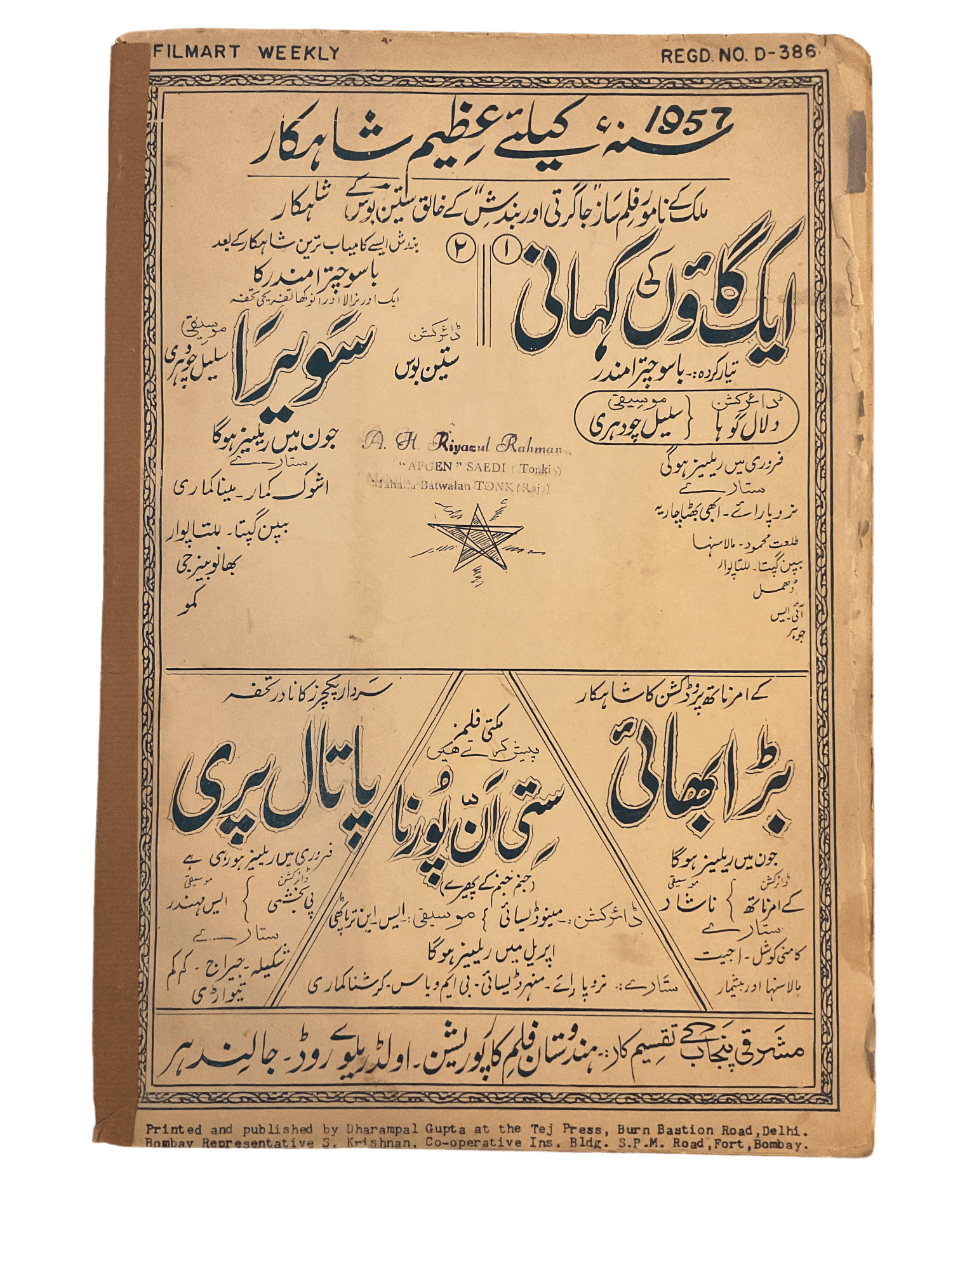 FILMART WEEKLY
REGD. NO. D-386
1957 سنہء کیلئے عظیم شاہکار
ملک کے نامور فلم ساز "جاگرتی اور بندش" کے خالق ستین بوس کے شاہکار
۱
ایک گاؤں کی کہانی
تیار کردہ:۔ باسو چترامندر
ڈائرکشن موسیقی
دلال گوہا } سلیل چودہری
فروری میں ریلیز ہوگی
ستارے
نروپارائے۔ ابھی بھٹاچاریہ
طلعت محمود۔ مالاسنہا
بپن گپتا۔ للتاپوار
دھمل
آئی۔ایس
جوہر
۲
بندش ایسے کامیاب ترین شاہکار کے بعد
باسو چترامندر کا
ایک اور نرالا اور انوکھا تفریحی تحفہ
سویرا
ڈائرکشن
ستین بوس
موسیقی
سلیل چوہدری
جون میں ریلیز ہوگا
ستارے
اشوک کمار۔ مینا کماری
بپن گپتا۔ للتا پوار
بھانو بینرجی
کمو
A. H. Riyazul Rahman
"AFGEN" SAEDI (Tonki)
Mahalla Batwalan TONK (Raj.)
کے امرناتھ پروڈکشن کا شاہکار
بڑا بھائی
جون میں ریلیز ہوگا
ڈائرکشن موسیقی
کے امرناتھ } ناشاد
ستارے
کامنی کوشل۔ اجیت
مالاسنہا اور بیشمار
مکتی فلمز
پیش کرتے ھیں
ستی اَنّ پُورنا
(جنم جنم کے پھیرے)
ڈائرکشن:۔ مینو ڈیسائی } موسیقی:۔ ایس این ترپاٹھی
اپریل میں ریلیز ہوگا
ستارے:۔ نروپارائے۔ منہر ڈیسائی۔ بی ایم ویاس۔ کرشنا کماری
سردار پکچرز کا نادر تحفہ
پاتال پری
فروری میں ریلیز ہو رہی ہے
ڈائرکشن موسیقی
پی بخشی } ایس مہندر
ستارے
شکیلہ۔ جیراج۔ کم کم
تیواڑی
مشرقی پنجاب کے تقسیم کار:۔ ہندوستان فلم کارپوریشن۔ اولڈ ریلوے روڈ۔ جالندہر
Printed and published by Dharampal Gupta at the Tej Press, Burn Bastion Road,Delhi.
Bombay Representative S. Krishnan, Co-operative Ins. Bldg. S.P.M. Road,Fort,Bombay.